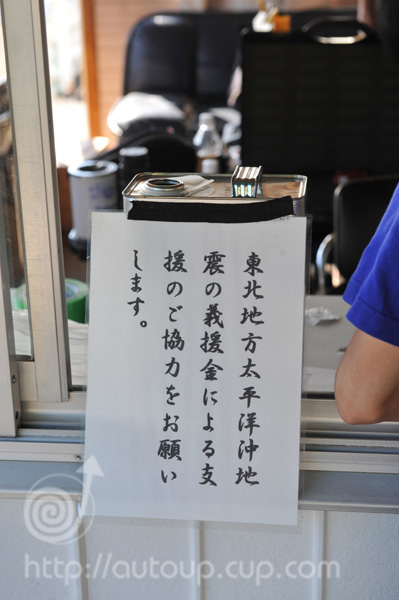 東北地方太平洋沖地
震の義援金による支
援のご協力をお願い
します。
http://autoup.cup.com/